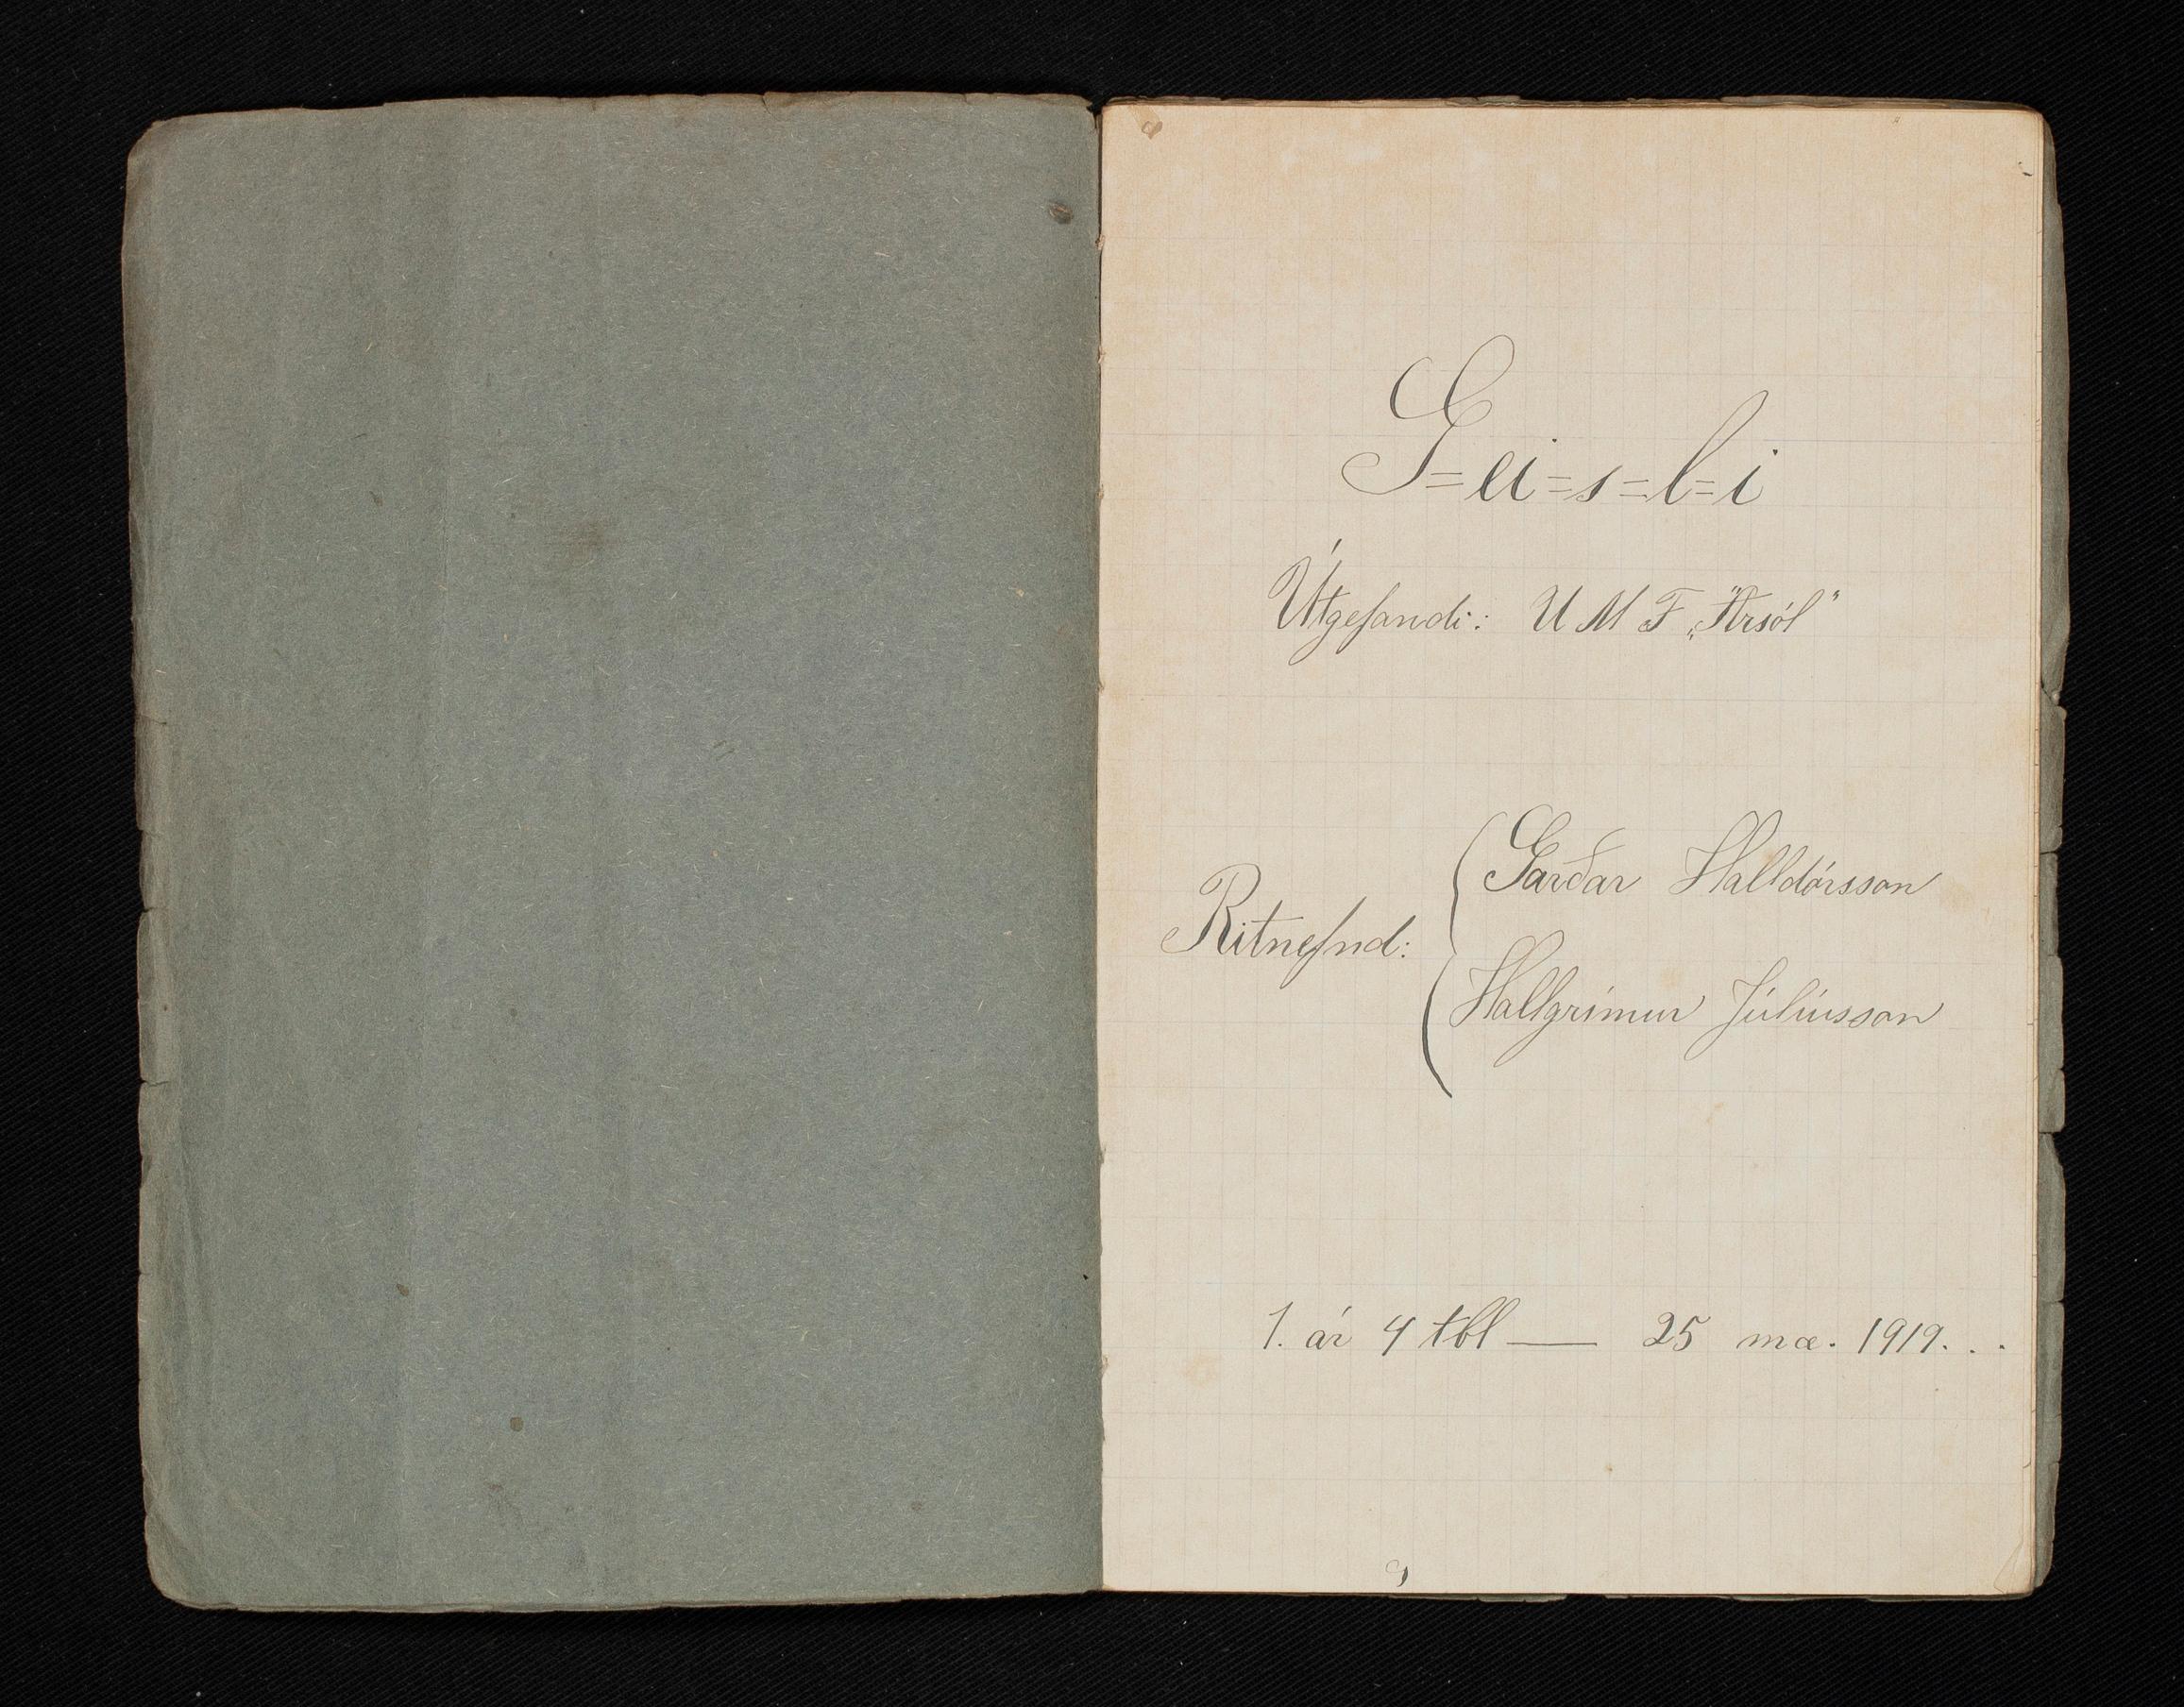 G=ei=s=l=i
Útgefandi: U M F „Ársól"
Ritnefnd:
Garðar Halldórsson
Hallgrímur Júlíusson
1. ár 4 tbl — 25 mæ. 1919. . .